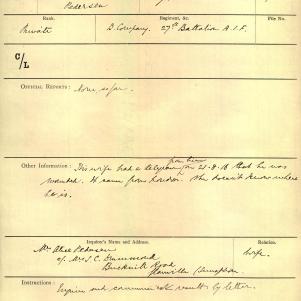 Pedersen
Rank. Regiment, &c. File No.
Private D. Company. 27th Battalion A.I.F.
C/L
OFFICIAL REPORTS : None so far.
from him
Other Information : His wife had a telegram on 21-8-16 that he was
wounded. It came from London. She doesn't know where
he is.
Inquirer's Name and Address. Relation.
Mrs Alice Pedersen wife.
c/o Mrs S. C. Drummond
Road
Instructions : Enquire and communicate results by letter.